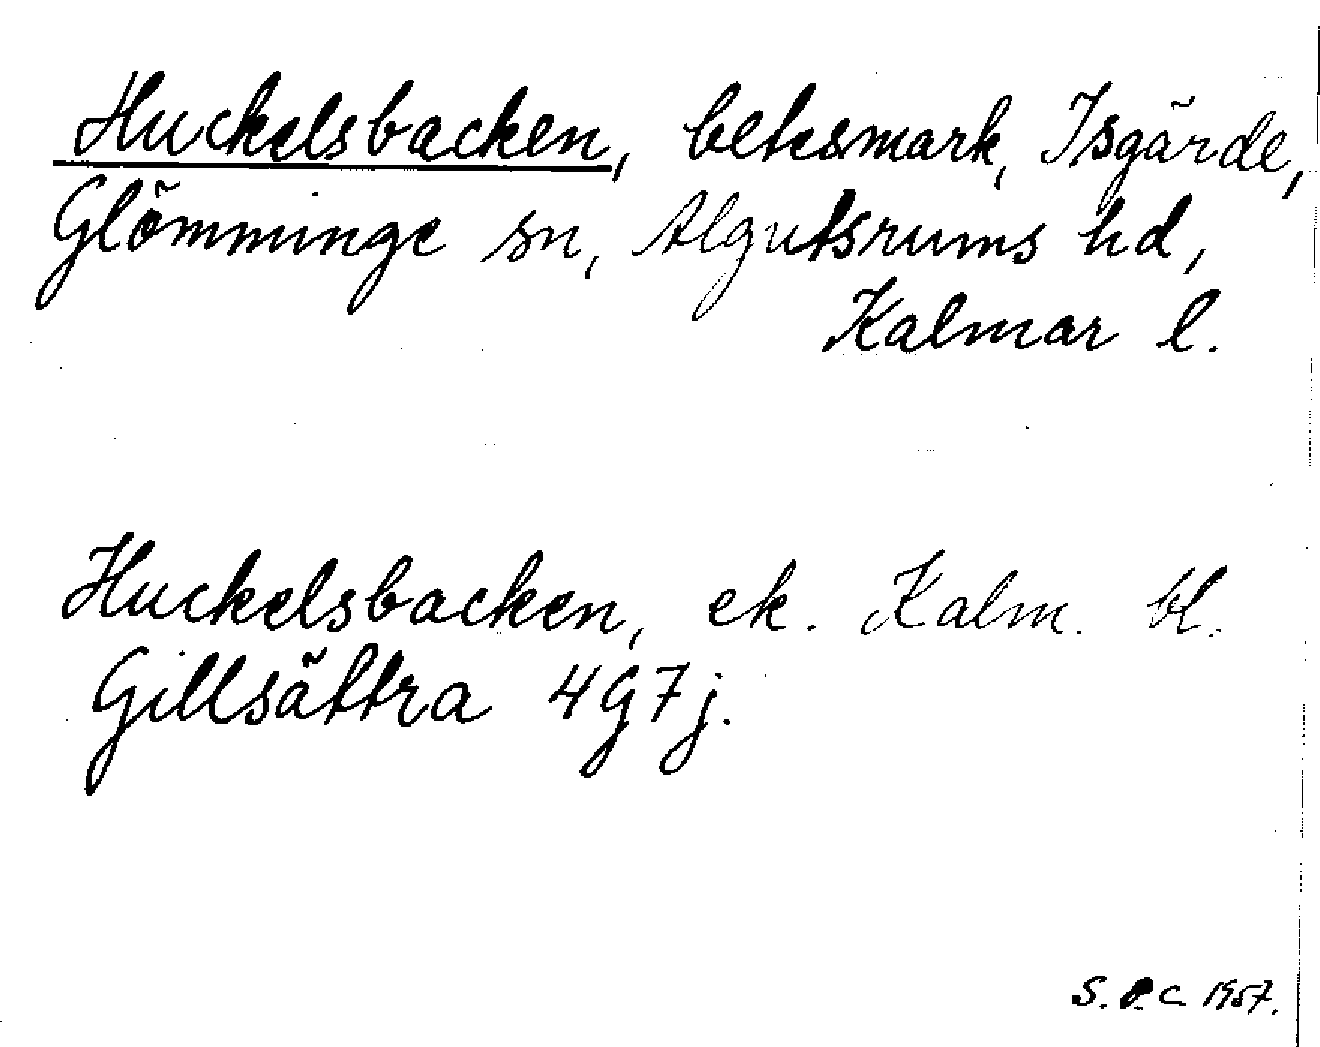 Huckelsbacken, betesmark, Isgärde,
Glömminge sn, Algutsrums hd,
Kalmar l.
Huckelsbacken, ek. Kalm. bl.
Gillsättra 4G7j.
S. P. C. 1957.